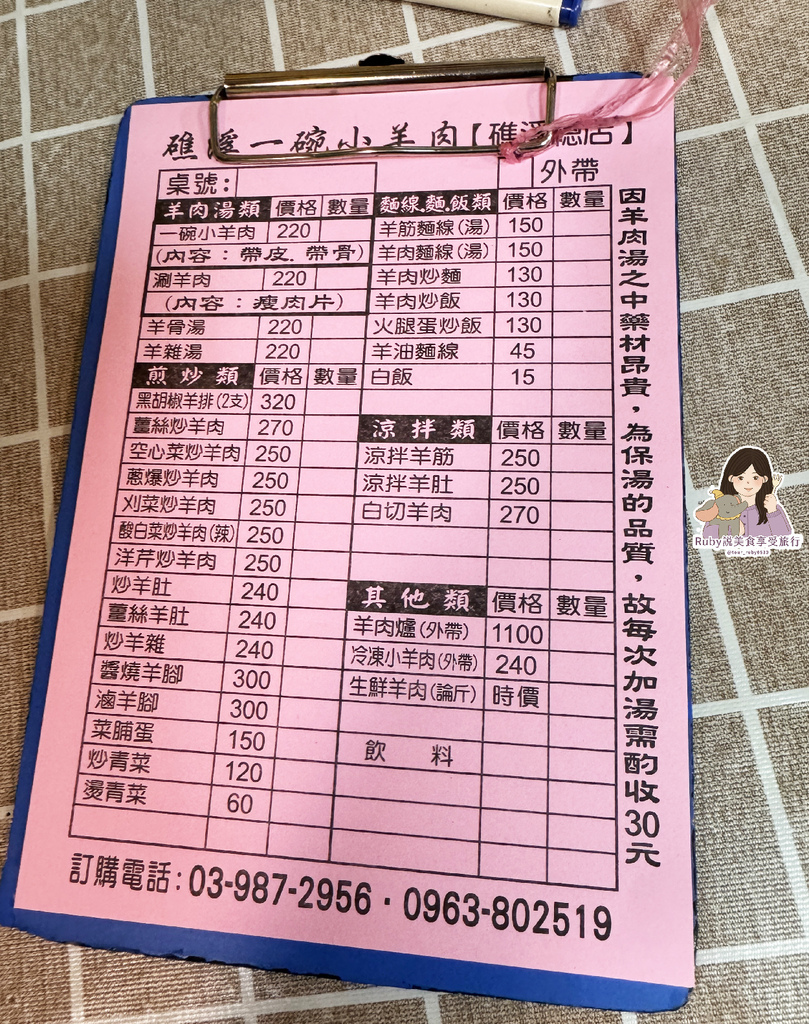 礁溪一碗小羊肉【礁溪總店】
桌號: 外帶
羊肉湯類 價格 數量
一碗小羊肉 220
(內容：帶皮.帶骨)
涮羊肉 220
(內容：瘦肉片)
羊骨湯 220
羊雜湯 220
煎炒類 價格 數量
黑胡椒羊排(2支) 320
薑絲炒羊肉 270
空心菜炒羊肉 250
蔥爆炒羊肉 250
刈菜炒羊肉 250
酸白菜炒羊肉(辣) 250
洋芹炒羊肉 250
炒羊肚 240
薑絲羊肚 240
炒羊雜 240
醬燒羊腳 300
滷羊腳 300
菜脯蛋 150
炒青菜 120
燙青菜 60
麵線.麵.飯類 價格 數量
羊筋麵線(湯) 150
羊肉麵線(湯) 150
羊肉炒麵 130
羊肉炒飯 130
火腿蛋炒飯 130
羊油麵線 45
白飯 15
涼拌類 價格 數量
涼拌羊筋 250
涼拌羊肚 250
白切羊肉 270
其他類 價格 數量
羊肉爐(外帶) 1100
冷凍小羊肉(外帶) 240
生鮮羊肉(論斤) 時價
飲 料
因羊肉湯之中藥材昂貴，為保湯的品質，故每次加湯需酌收30元
訂購電話:03-987-2956·0963-802519
Ruby說美食享受旅行